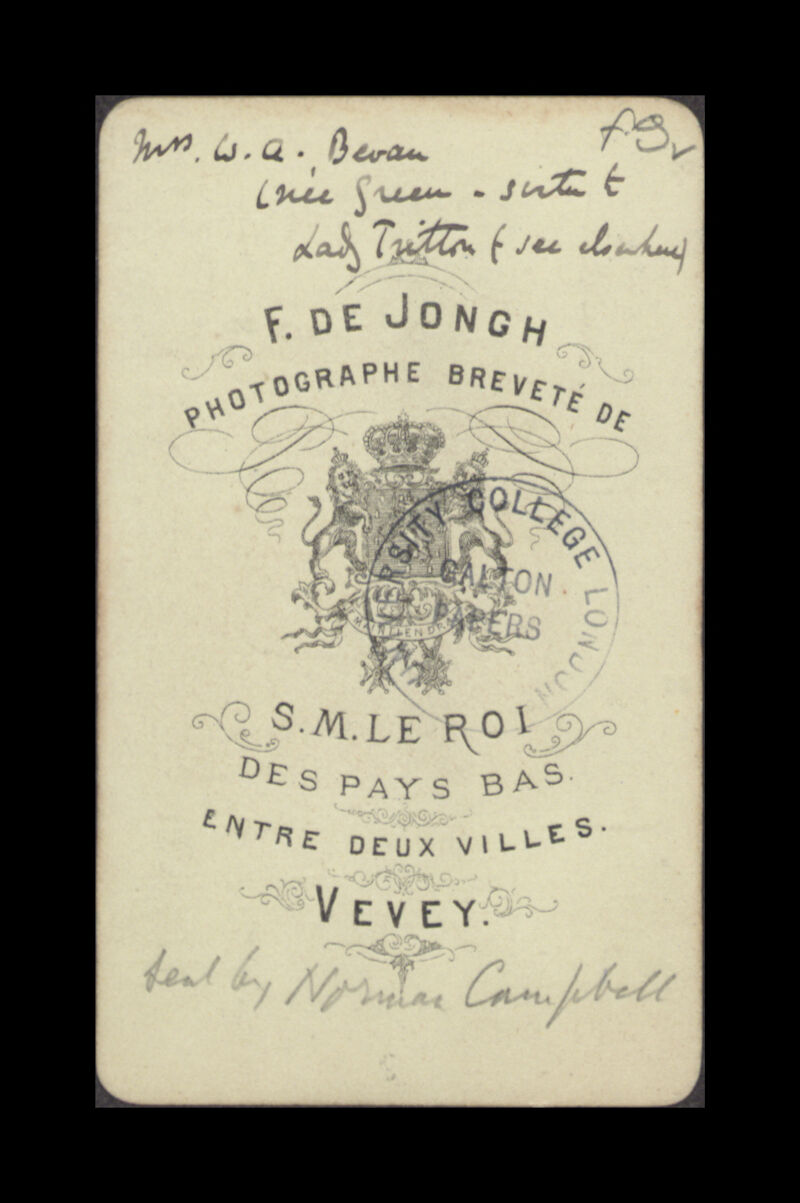 f9v
Mrs. W. A. Bevan
(née Green - sister to
Lady Tritton (see elsewhere)
F. DE JONGH
PHOTOGRAPHE BREVETÉ DE
UNIVERSITY COLLEGE LONDON
GALTON
PAPERS
S.M. LE ROI
DES PAYS BAS.
ENTRE DEUX VILLES.
VEVEY.
sent by Norman Campbell